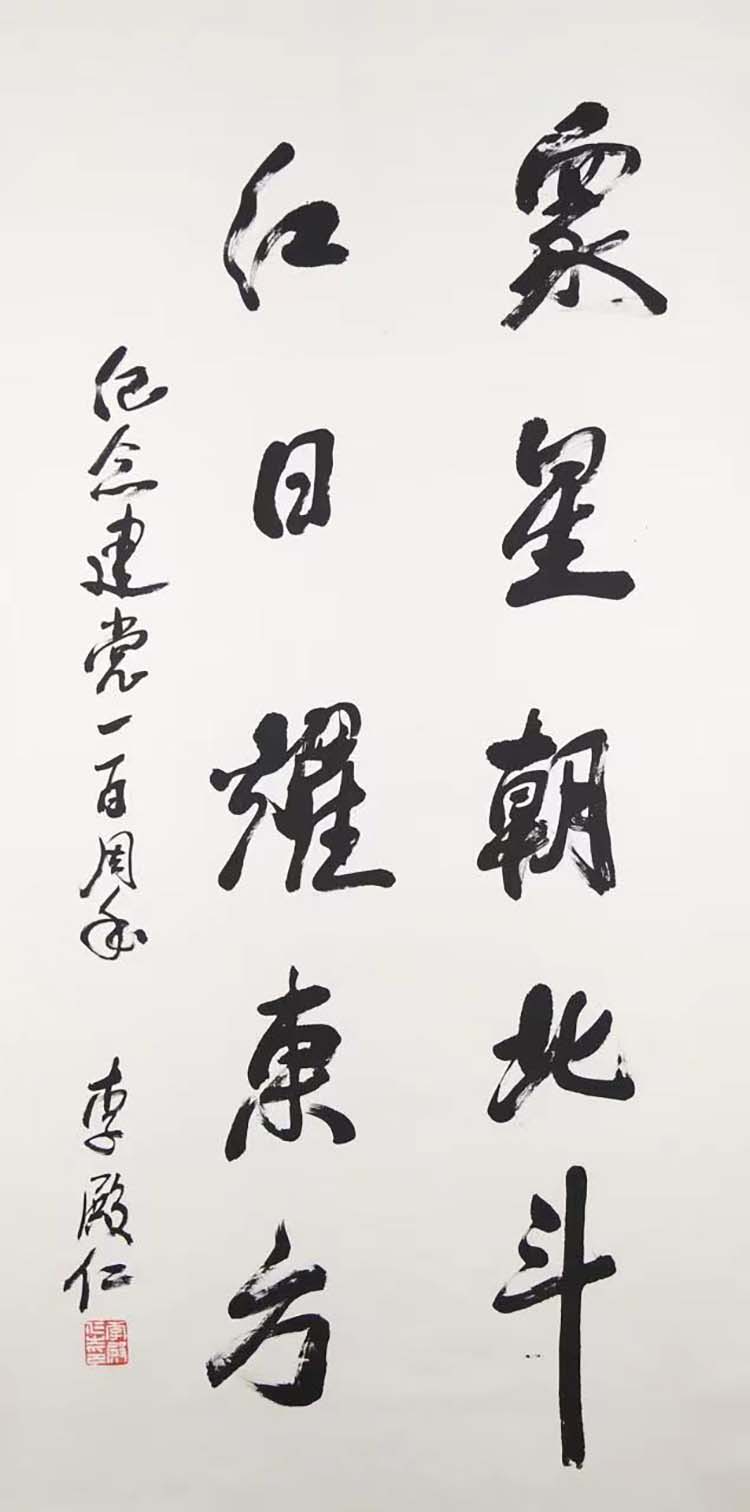 眾星朝北斗
红日耀東方
纪念建党一百周年
李殿仁